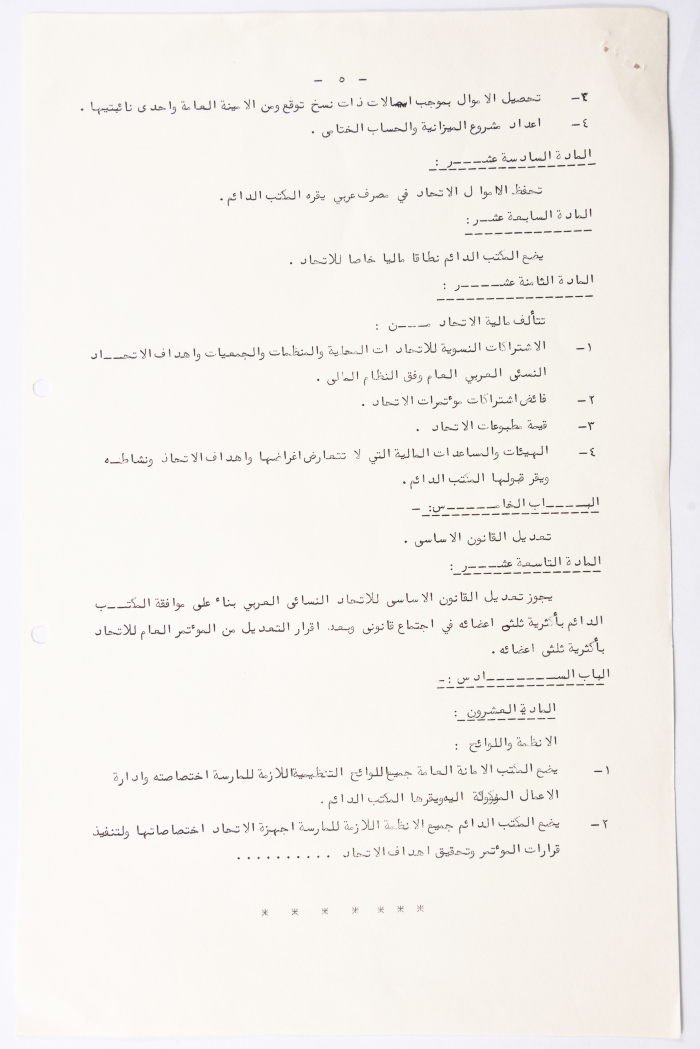 - ٥ -
٣- تحصيل الاموال بموجب ايصالات ذات نسخ توقع ومن الامينة العامة واحدى نائبتيها .
٤- اعداد مشروع الميزانية والحساب الختامى .
المادة السادسة عشـــر :
تحفظ الاموال الاتحاد في مصرف عربي يقره المكتب الدائم .
المادة السابعة عشـر :
يضع المكتب الدائم نطاقا ماليا خاصا للاتحاد .
المادة الثامنة عشـــر :
تتألف مالية الاتحاد مـــن :
١- الاشتراكات النسوية للاتحاد ات المحلية والمنظمات والجمعيات واهداف الاتحـــاد
النسئى العربي العام وفق النظام المالى .
٢- فائض اشتراكات مؤتمرات الاتحاد .
٣- قيمة مطبوعات الاتحاد .
٤- الهيئات والمساعدات المالية التي لا تتعارض اغراضها واهداف الاتحاد ونشاطـه
ويقر قبولها المكتب الدائم .
البـــــاب الخامـــــس : -
تعديل القانون الاساسى .
المادة التاسعة عشـــر :
يجوز تعديل القانون الاساسى للاتحاد النسائى العربي بناء على موافقة المكتــب
الدائم بأكثرية ثلثى اعضائه في اجتماع قانونى وبعد اقرار التعديل من الموتمر العام للاتحاد
بأكثرية ثلثى اعضائه .
الباب الســـــــادس : -
المادة العشرون :
الانظمة واللوائح :
١- يضع المكتب الامانة العامة جميع اللوائح التنظيمية اللازمة للمارسة اختصاصته وادارة
الاعمال الموكولة اليه ويقرها المكتب الدائم .
٢- يضع المكتب الدائم جميع الانظمة اللازمة للمارسة اجهزة الاتحاد اختصاصاتها ولتنفيذ
قرارات الموتمر وتحقيق اهداف الاتحاد ..........
* * * * * * *